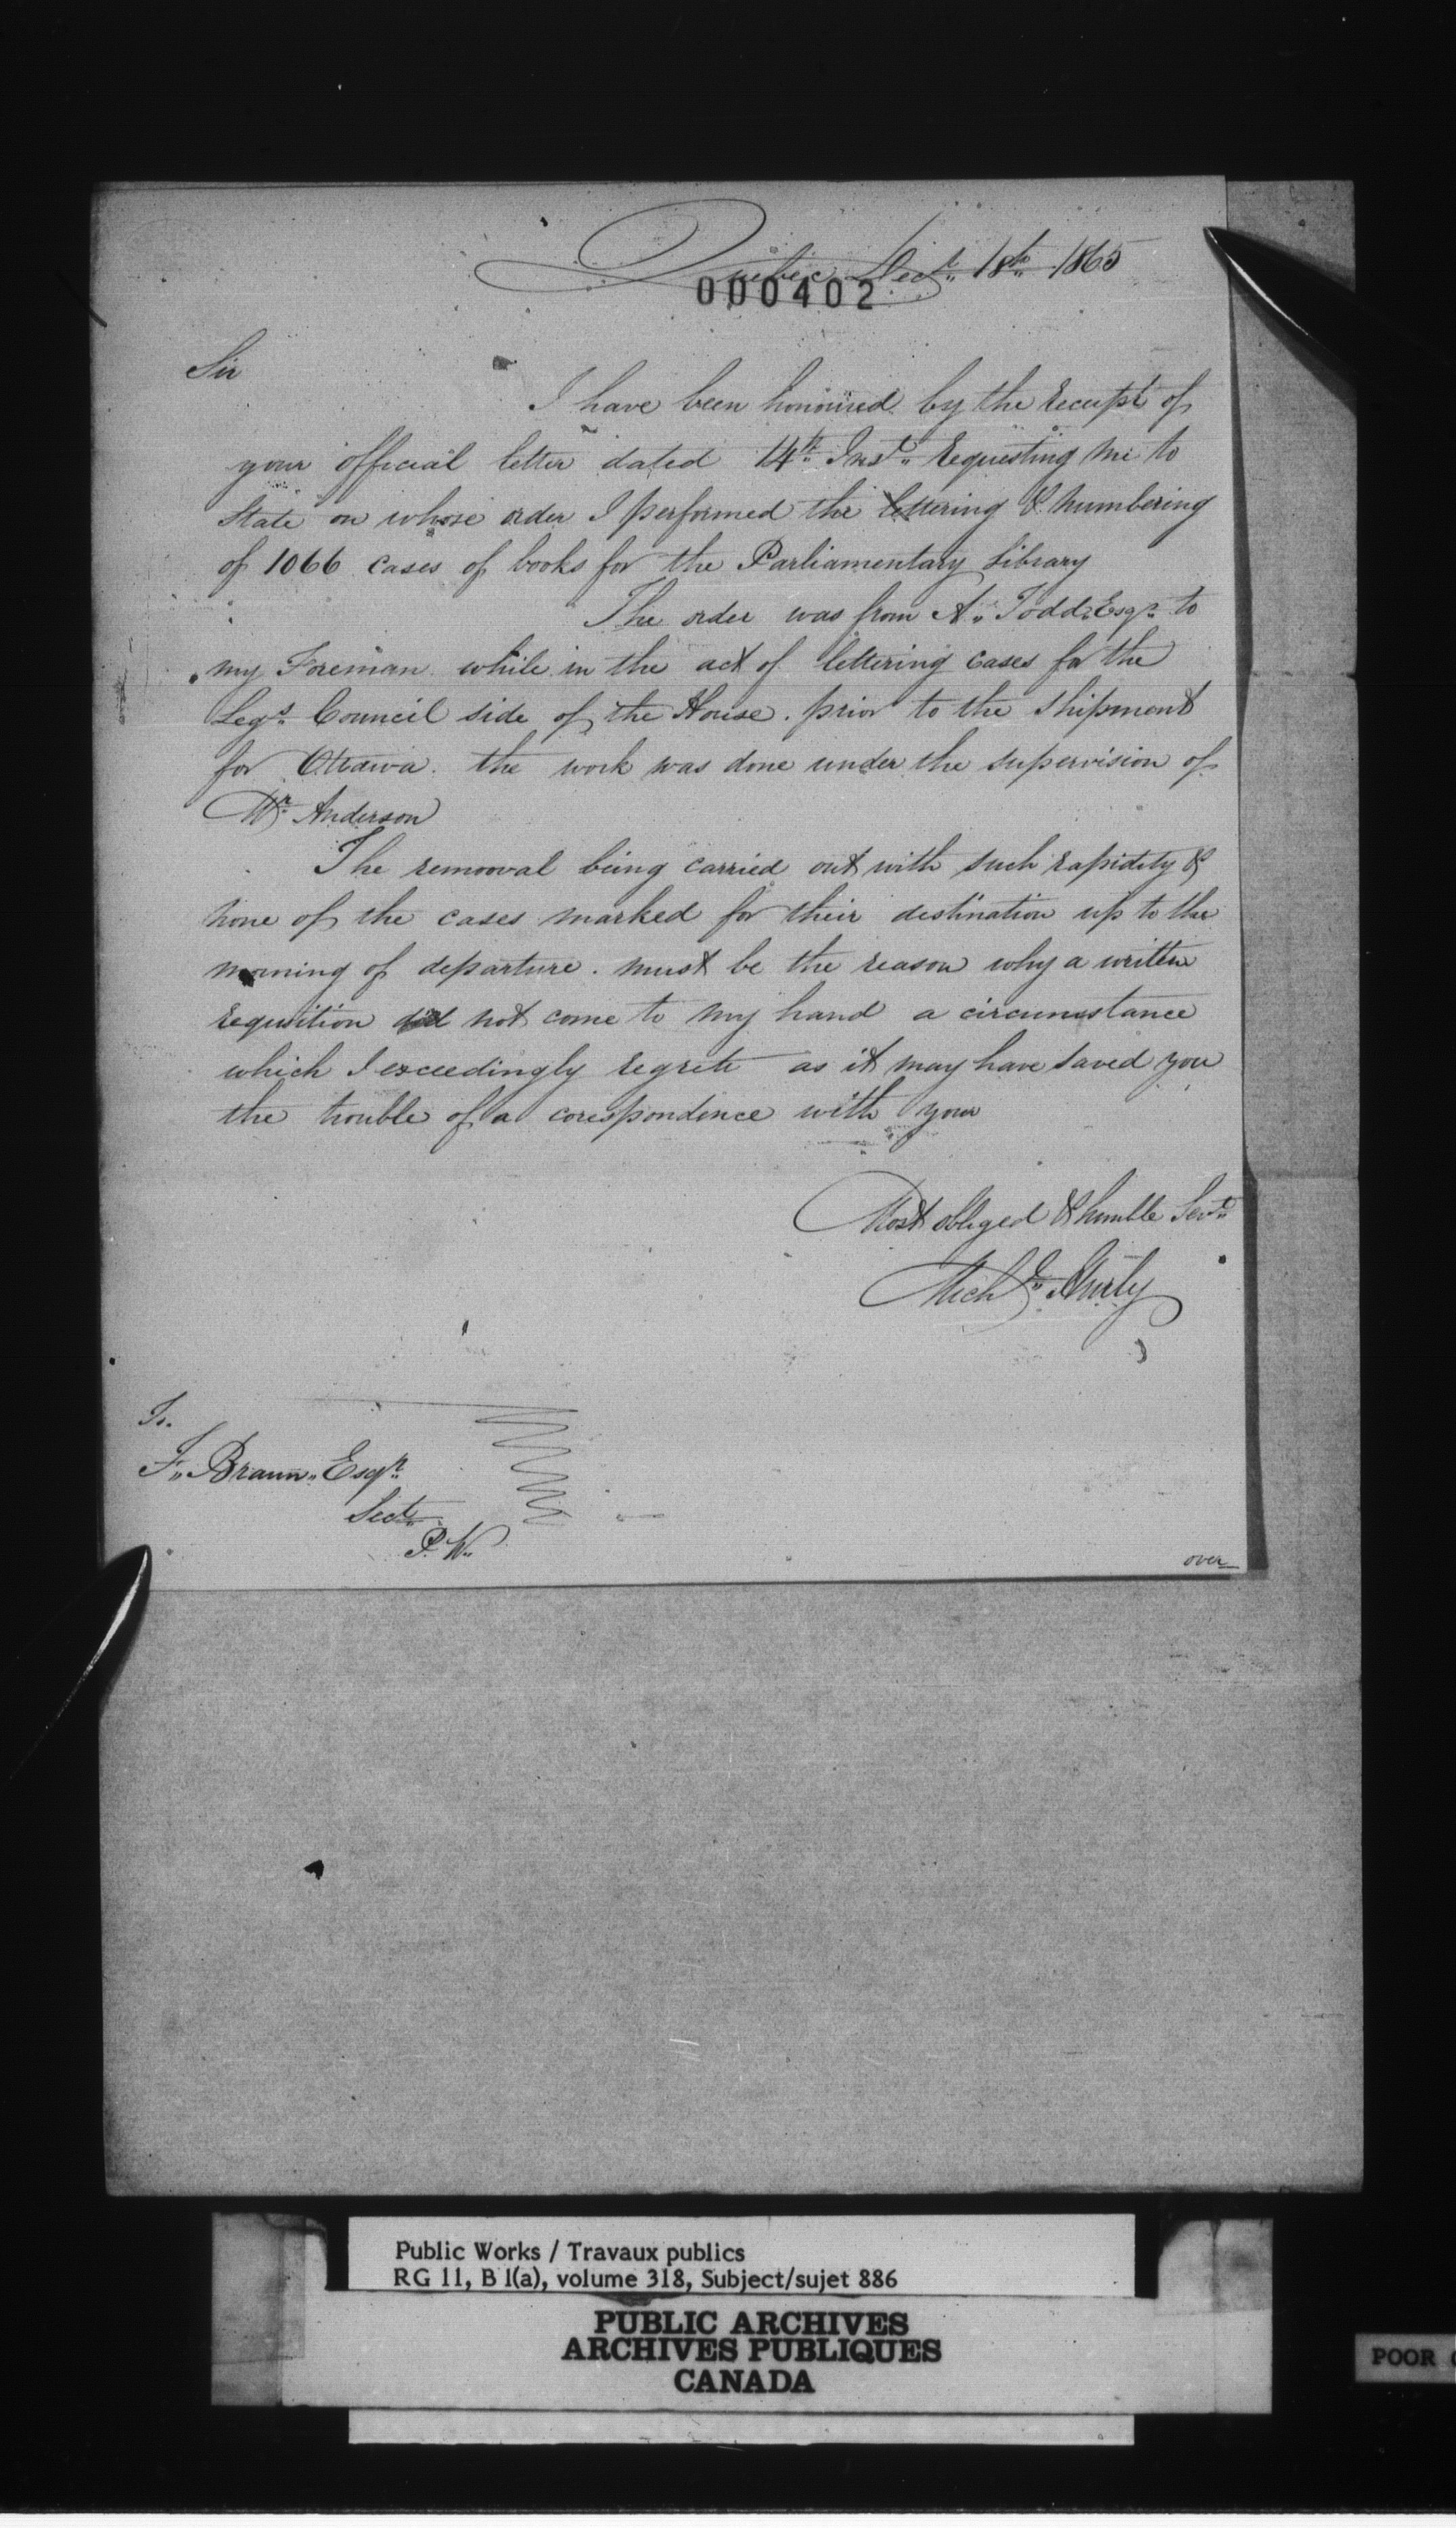 Quebec Decr. 18th 1865
000402
Sir
I have been honoured by the receipt of
your official letter dated 14th Inst. requesting me to
State on whose order I performed the lettering & numbering
of 1066 cases of books for the Parliamentary Library
The order was from A. Todd Esqr. to
my Foreman while in the act of lettering cases for the
Legs. Council side of the House. prior to the Shipment
for Ottawa. the work was done under the supervision of
Mr. Anderson
The remooval being carried out with such rapidity &
none of the cases marked for their destination up to the
morning of departure. must be the reason why a writen
requisition did not come to my hand a circumstance
which I exceedingly regret as it may have saved you
the trouble of a corespondence with your
Most obliged & humble Servt.
Michl.
To.
F. Braun. Esqr.
Sect.
P. W.
over
Public Works / Travaux publics
RG 11, B 1(a), volume 318, Subject/sujet 886
PUBLIC ARCHIVES
ARCHIVES PUBLIQUES
CANADA
POOR